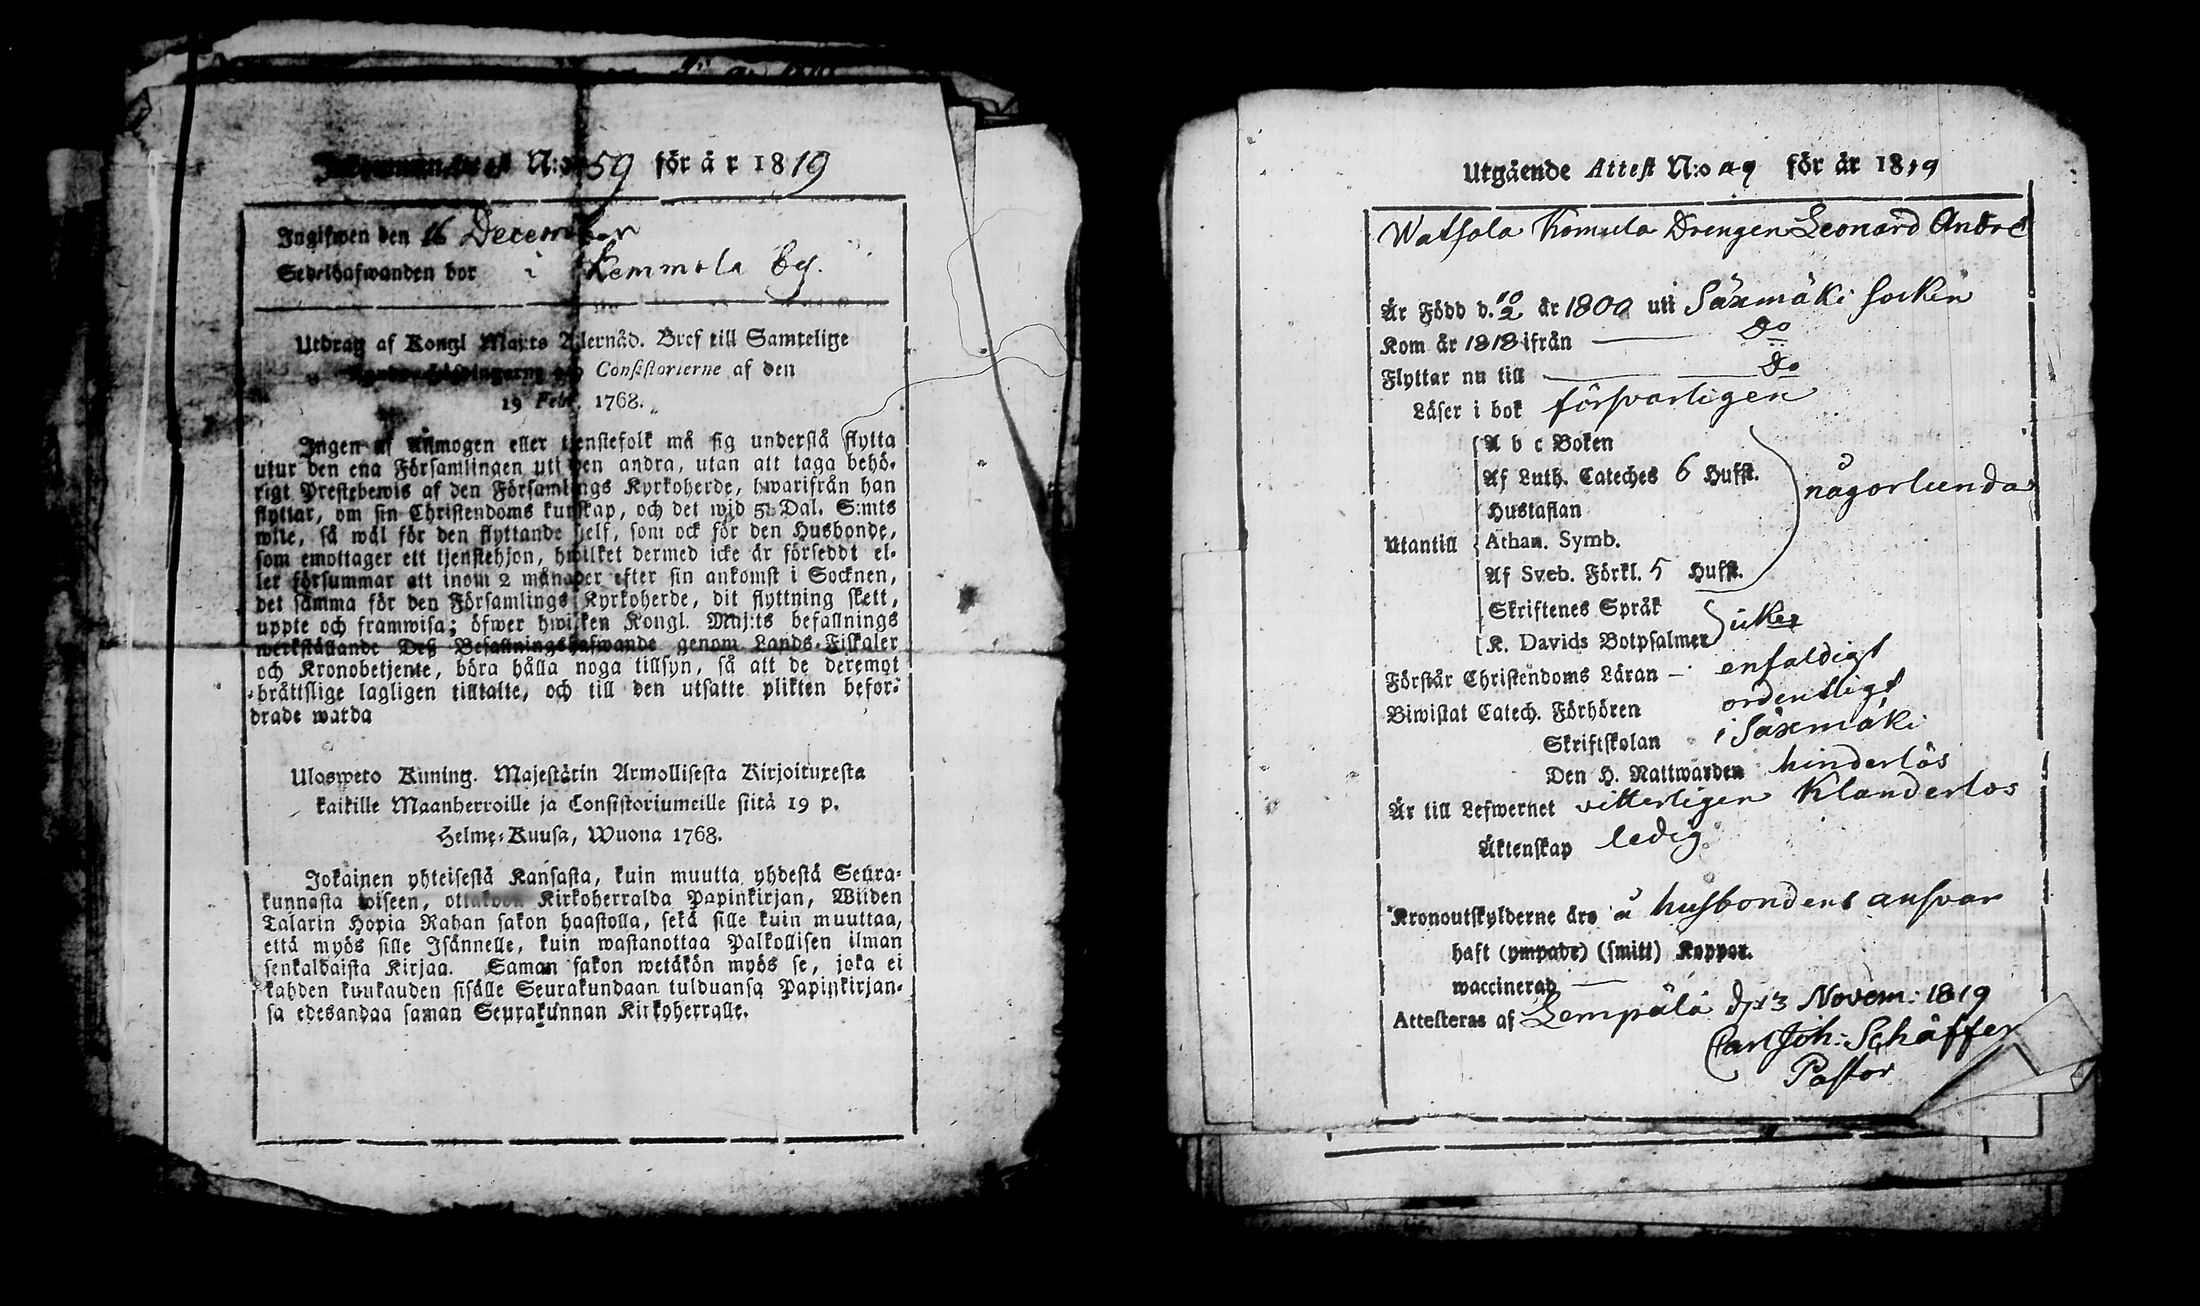 N:o 59 för år 1819
Ingifwen den 16 December
Sedelhafwanden bor i Kemmola by.
Utdrag af Kongl Maj:ts Allernåd. Bref till Samtelige
Consistorierne af den
19 Febr. 1768.
Ingen af Allmogen eller tjenstefolk må sig understå flytta
utur den ena Församlingen uti den andra, utan att taga behö-
rigt Prestebewis af den Församlings Kyrkoherde, hwarifrån han
flyttar, om sin Christendoms kunskap, och det wid 5 Dal. S:mts
wite, så wäl för den flyttande sielf, som ock för den Husbonde,
som emottager ett tjenstehjon, hwilket dermed icke är försedt el-
ler försummar att inom 2 månader efter sin ankomst i Socknen,
det samma för den Församlings Kyrkoherde, dit flyttning skett,
uppte och framwisa; öfwer hwilken Kongl. Maj:ts befallnings
werkställande Deß Befallningshafwande genom Lands-Fiskaler
och Kronobetjente, böra hålla noga tillsyn, så att de deremot
brättslige lagligen tilltalte, och till den utsatte plikten befor-
drade warda
Ulosweto Kuning. Majestätin Armollisesta Kirjoituxesta
kaikille Maanherroille ja Consistoriumeille siitä 19 p.
Helme-Kuusa, Wuona 1768.
Jokainen yhteisestä Kansasta, kuin muutta yhdestä Seura-
kunnasta toiseen, ottakoon Kirkoherralda Papinkirjan, Wiiden
Talarin Hopia Rahan sakon haastolla, sekä sille kuin muuttaa,
että myös sille Isännelle, kuin wastanottaa Palkollisen ilman
senkaldaista Kirjaa. Saman sakon wetäkön myös se, joka ei
kahden kuukauden sisälle Seurakundaan tulduansa Papinkirjan-
sa edesandaa saman Seurakunnan Kirkoherralle.
Utgående Attest N:o 49 för år 1819
Watsola Komula Drengen Leonard Andre
Är Född d. 10/2 år 1800 uti Säxmäki socken
Kom år 1818 ifrån Do
Flyttar nu till Do
Läser i bok försvarligen
A b c Boken
Af Luth. Cateches 6 Hufst.
någorlunda
Hustaflan
Utantill Athan. Symb.
Af Sveb. Förkl. 5 Hufst.
Skriftenes Språk
icke
K. Davids Botpsalmer
Förstår Christendoms Läran - enfaldigt
Biwistat Catech. Förhören ordentligt
Skriftskolan i Säxmäki
Den H. Nattwarden hinderlös
Är till Lefwernet vitterligen Klanderlös
Äktenskap ledig
Kronoutskylderne äro å husbondens ansvar
haft (ympade) (smitt) Koppor.
waccinerad
Attesteras af Lempälä d. 13 Novem: 1819
Carl Joh: Schäffer
Pastor